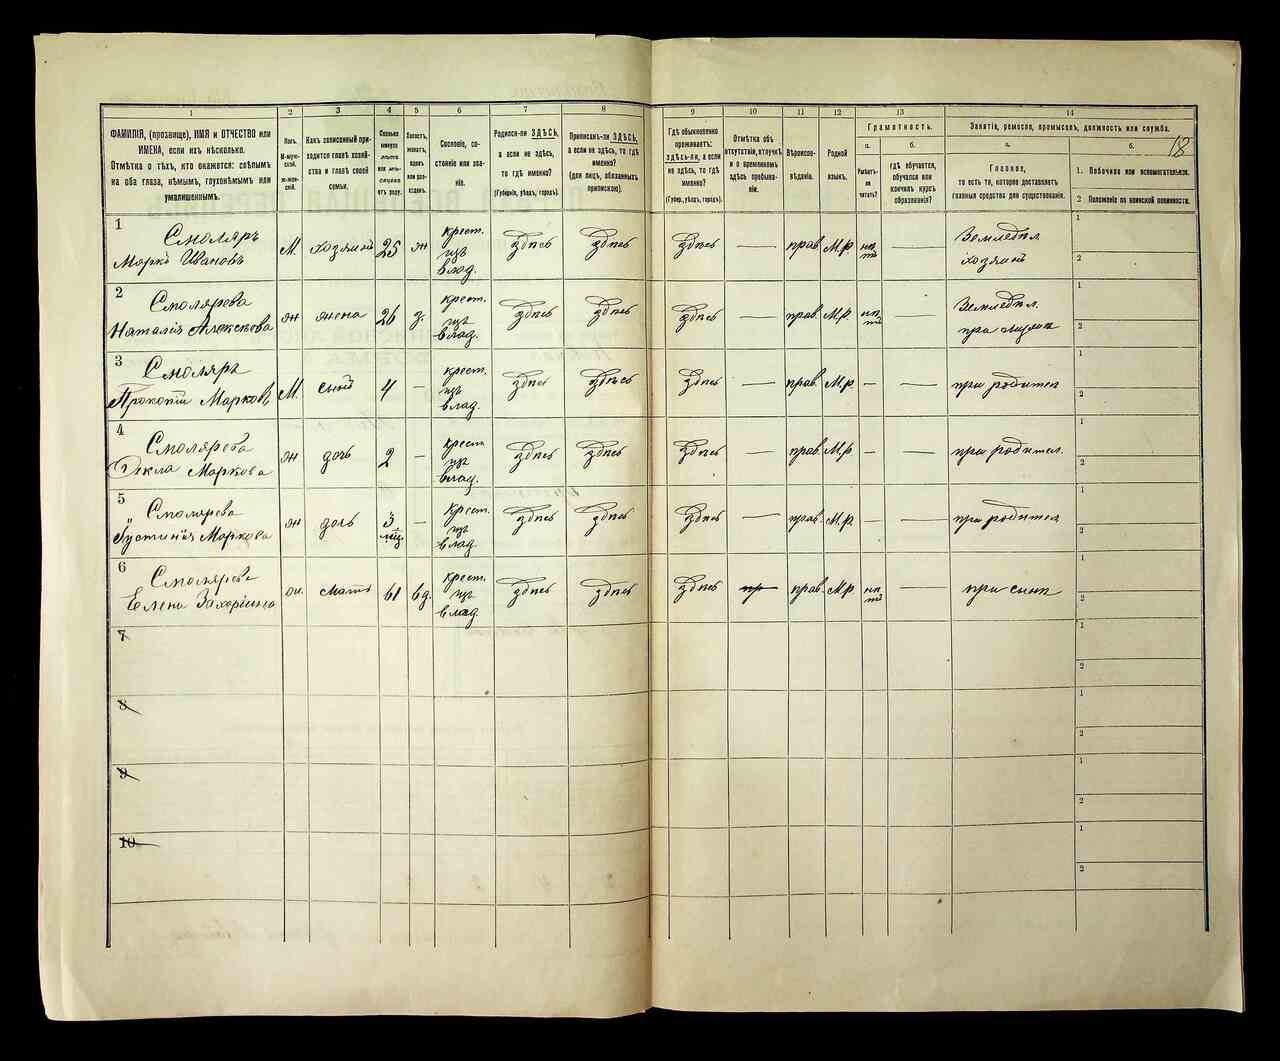 18
1 2 3 4 5 6 7 8 9 10 11 12 13 14
ФАМИЛІЯ, (прозвище), ИМЯ и ОТЧЕСТВО или
ИМЕНА, если ихъ нѣсколько.
Отмѣтка о тѣхъ, кто окажется: слѣпымъ
на оба глаза, нѣмымъ, глухонѣмымъ или
умалишеннымъ.
Полъ.
М-мужской.
ж-женскій.
Какъ записанный приходится
главѣ хозяйства
и главѣ своей
семьи.
Сколько
минуло
лѣтъ
или мѣсяцевъ
отъ роду.
Холостъ,
женатъ,
вдовъ
или разведенъ.
Сословіе, состояніе
или званіе.
Родился-ли ЗДѢСЬ,
а если не здѣсь,
то гдѣ именно?
(Губернія, уѣздъ, городъ).
Приписанъ-ли ЗДѢСЬ,
а если не здѣсь, то гдѣ
именно?
(для лицъ, обязанныхъ
припискою).
Гдѣ обыкновенно
проживаетъ:
ЗДѢСЬ-ли, а если
не здѣсь, то гдѣ
именно?
(Губер., уѣздъ, городъ).
Отмѣтка объ
отсутствіи, отлучкѣ
и о временномъ
здѣсь пребываніи.
Вѣроисповѣданіе.
Родной
языкъ.
Грамотность.
а.
Умѣетъ-ли
читать?
б.
гдѣ обучается,
обучался или
кончилъ курсъ
образованія?
Занятіе, ремесло, промыселъ, должность или служба.
а.
Главное,
то есть то, которое доставляетъ
главныя средства для существованія.
б.
1. Побочное или вспомогательное.
2 Положеніе по воинской повинности.
1 Смоляръ
Марко Ивановъ М. хозяинъ 25 ж крест. изъ влад. здѣсь здѣсь здѣсь — прав. М.р. нѣтъ — Земледѣл. хозяинъ 1 2
2 Смолярева
Наталія Алексѣева ж жена 26 з. крест. изъ влад. здѣсь здѣсь здѣсь — прав. М.р. нѣтъ — Земледѣл. при 1 2
3 Смоляръ
Прокопій Марковъ М. сынъ 4 — крест. изъ влад. здѣсь здѣсь здѣсь — прав. М.р — — при родител 1 2
4 Смолярева
Ѳекла Маркова ж дочь 2 — крест изъ влад. здѣсь здѣсь здѣсь — прав. М.р — — при родител. 1 2
5 Смолярева
Іустинія Маркова ж дочь 3 мѣц. — крест. изъ влад. здѣсь здѣсь здѣсь — прав. М.р — — при родител 1 2
6 Смолярева
Елена Захоріина ж. мать 61 вд. крест. изъ влад. здѣсь здѣсь здѣсь пр прав. М.р нѣтъ — при сынѣ 1 2
7 1 2
8 1 2
9 1 2
10 1 2